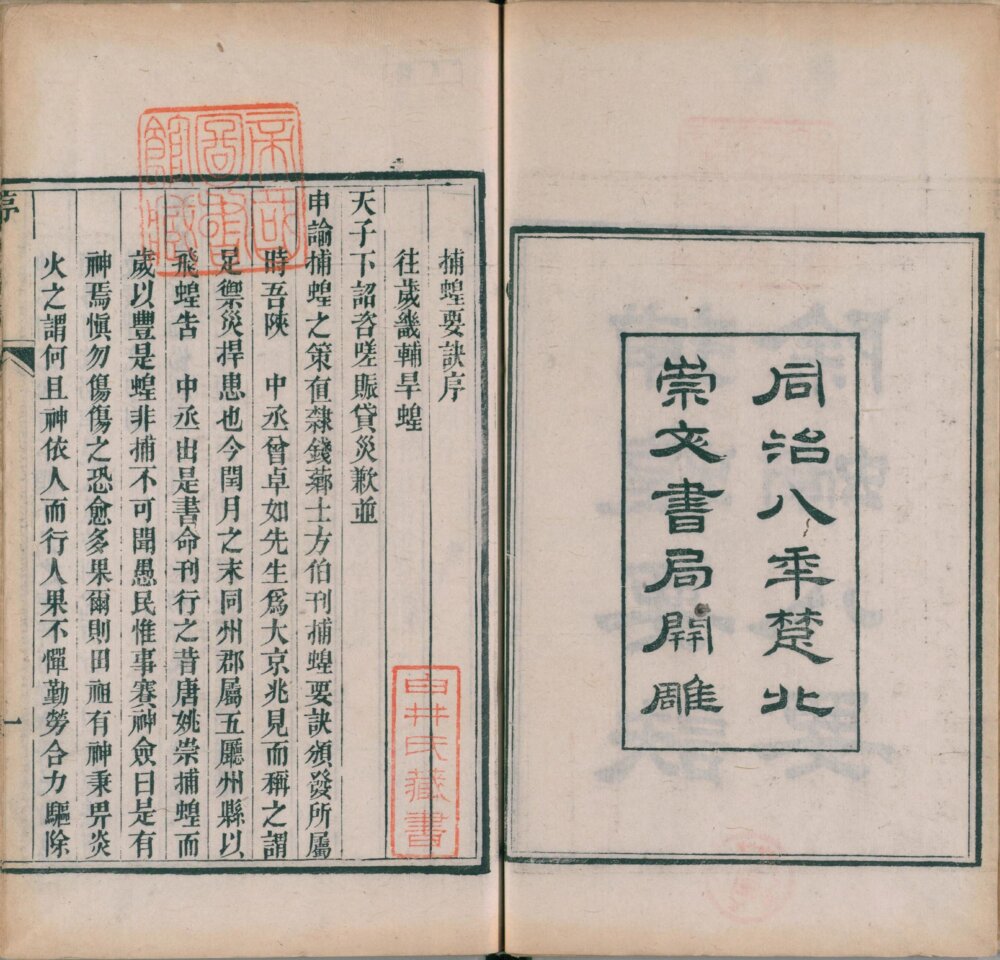 同治八年楚北
崇文書局開雕
捕蝗要訣序
往歲畿輔旱蝗
天子下詔咨嗟賑貸災歉並
申諭捕蝗之策直隸錢薌士方伯刊捕蝗要訣頒發所屬
時吾陝 中丞曾卓如先生為大京兆見而稱之謂
足禦災捍患也今閏月之末同州郡屬五廳州縣以
飛蝗告 中丞出是書命刊行之昔唐姚崇捕蝗而
歲以豐是蝗非捕不可聞愚民惟事賽神僉曰是有
神焉愼勿傷傷之恐愈多果爾則田祖有神秉畀炎
火之謂何且神依人而行人果不憚勤勞合力驅除
序
一
帝國圖書館藏
白井氏藏書